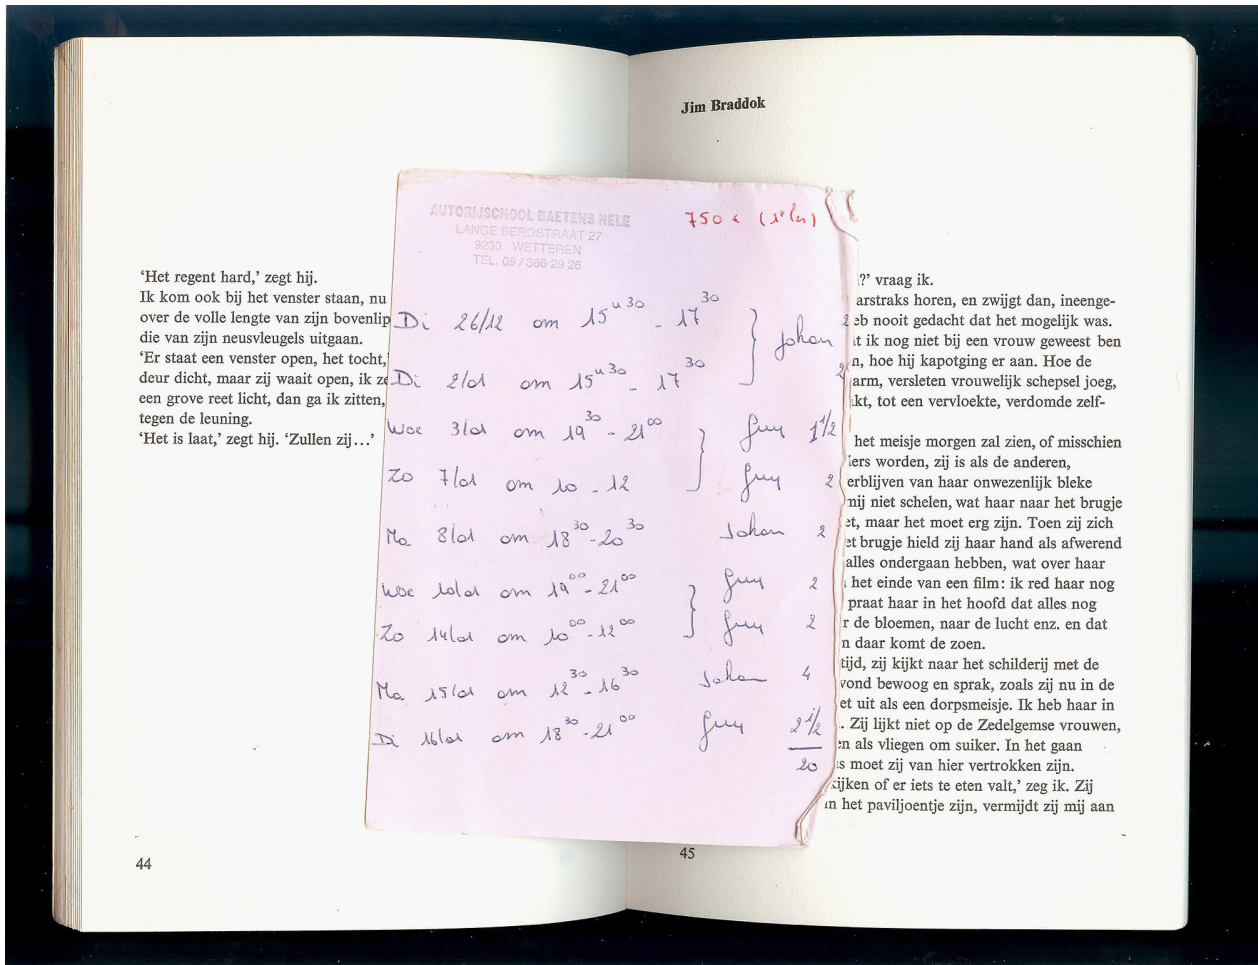 'Het regent hard,' zegt hij.
Ik kom ook bij het venster staan, nu
over de volle lengte van zijn bovenlip
die van zijn neusvleugels uitgaan.
'Er staat een venster open, het tocht,'
deur dicht, maar zij waait open, ik ze
een grove reet licht, dan ga ik zitten,
tegen de leuning.
'Het is laat,' zegt hij. 'Zullen zij...'
44
AUTORIJSCHOOL BAETENS NELE
LANGE BERGSTRAAT 27
9230 WETTEREN
TEL. 09 / 366 29 26
750 € (1e les)
Di 26/12 om 15u30 - 17 30 } Johan 2
Di 2/01 om 15u30 - 17 30 2
Woe 3/01 om 19 30 - 21 00 } Guy 1 1/2
Zo 7/01 om 10 - 12 Guy 2
Ma 8/01 om 18 30 - 20 30 Johan 2
Woe 10/01 om 19 00 - 21 00 } Guy 2
Zo 14/01 om 10 00 - 12 00 Guy 2
Ma 15/01 om 12 30 - 16 30 Johan 4
Di 16/01 om 18 30 - 21 00 Guy 2 1/2
20
Jim Braddok
?' vraag ik.
arstraks horen, en zwijgt dan, ineenge-
eb nooit gedacht dat het mogelijk was.
t ik nog niet bij een vrouw geweest ben
n, hoe hij kapotging er aan. Hoe de
arm, versleten vrouwelijk schepsel joeg,
kt, tot een vervloekte, verdomde zelf-
het meisje morgen zal zien, of misschien
ers worden, zij is als de anderen,
erblijven van haar onwezenlijk bleke
mij niet schelen, wat haar naar het brugje
et, maar het moet erg zijn. Toen zij zich
et brugje hield zij haar hand als afwerend
alles ondergaan hebben, wat over haar
het einde van een film: ik red haar nog
praat haar in het hoofd dat alles nog
r de bloemen, naar de lucht enz. en dat
n daar komt de zoen.
tijd, zij kijkt naar het schilderij met de
vond bewoog en sprak, zoals zij nu in de
et uit als een dorpsmeisje. Ik heb haar in
. Zij lijkt niet op de Zedelgemse vrouwen,
en als vliegen om suiker. In het gaan
s moet zij van hier vertrokken zijn.
kijken of er iets te eten valt,' zeg ik. Zij
in het paviljoentje zijn, vermijdt zij mij aan
45